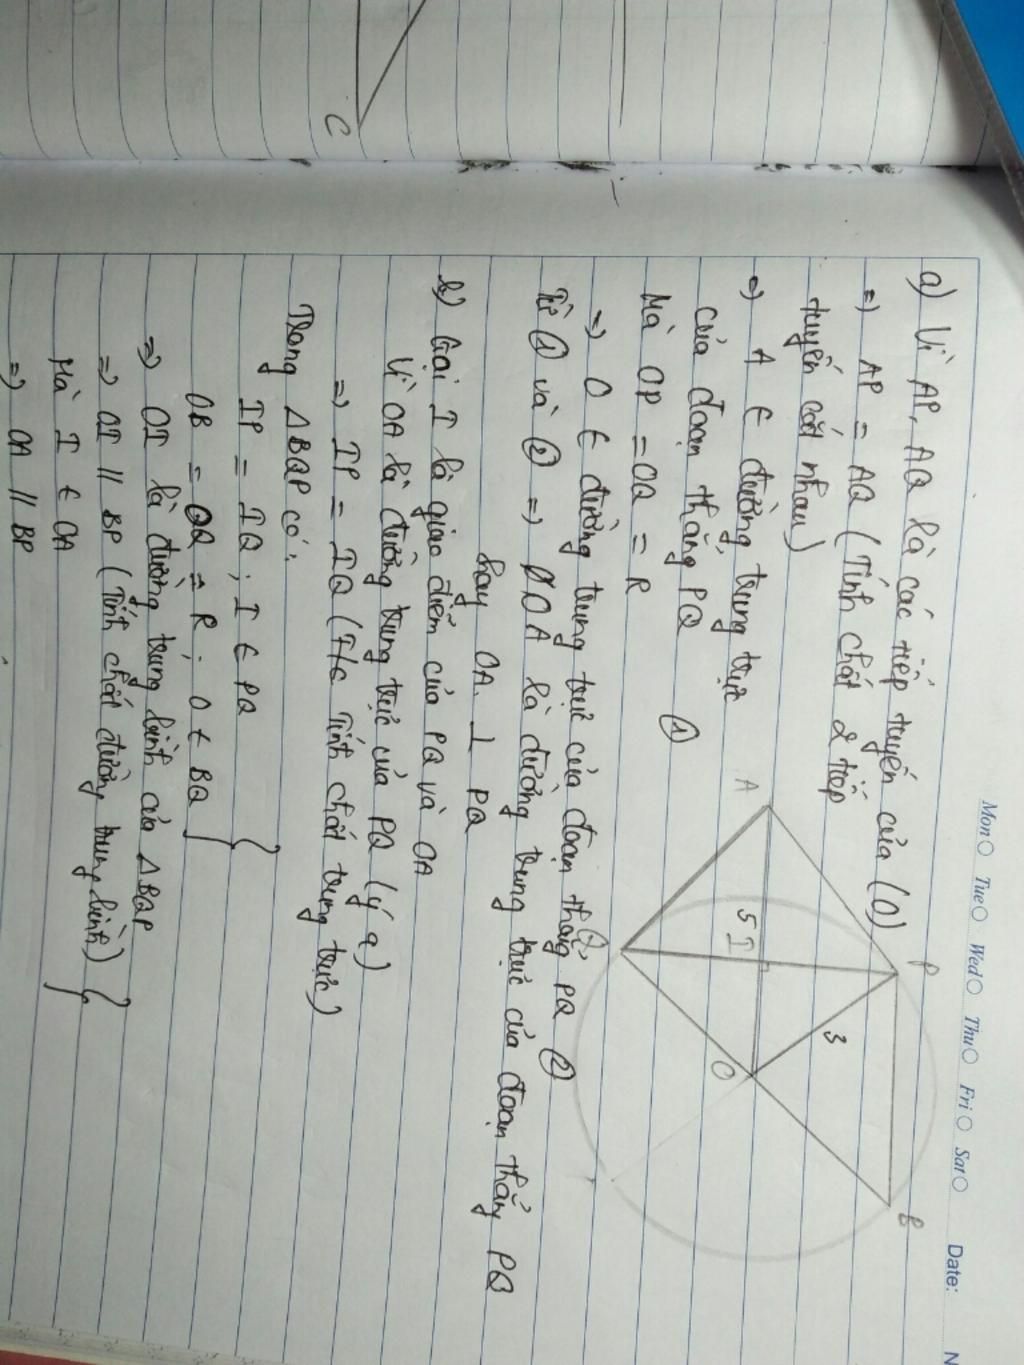 Mon Tue Wed Thu Fri Sat Date: N
a) Vì AP, AQ là các tiếp tuyến của (O)
=) AP = AQ (Tính chất 2 tiếp
tuyến cắt nhau)
=) A ∈ đường trung trực
của đoạn thẳng PQ ①
Mà OP = OQ = R
=) O ∈ đường trung trực của đoạn thẳng PQ ②
Từ ① và ② =) OA là đường trung trực của đoạn thẳng PQ
hay OA ⊥ PQ
b) Gọi I là giao điểm của PQ và OA
Vì OA là đường trung trực của PQ (ý a)
=) IP = IQ (T/c tính chất trung trực)
Trong ΔBQP có:
IP = IQ ; I ∈ PQ
OB = OQ = R ; O ∈ BQ }
=) OI là đường trung bình của ΔBQP
=) OI // BP (Tính chất đường trung bình)
Mà I ∈ OA }
=) OA // BP
A
P
5
I
3
Q
O
B
C